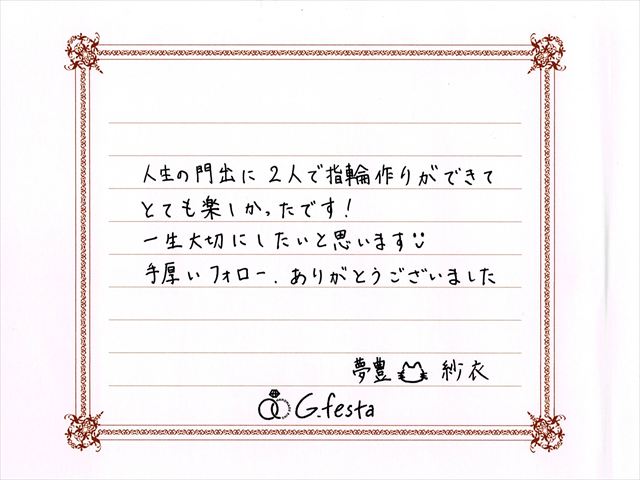 人生の門出に2人で指輪作りができて
とても楽しかったです!
一生大切にしたいと思います
手厚いフォロー、ありがとうございました
夢豊 紗衣
G.festa